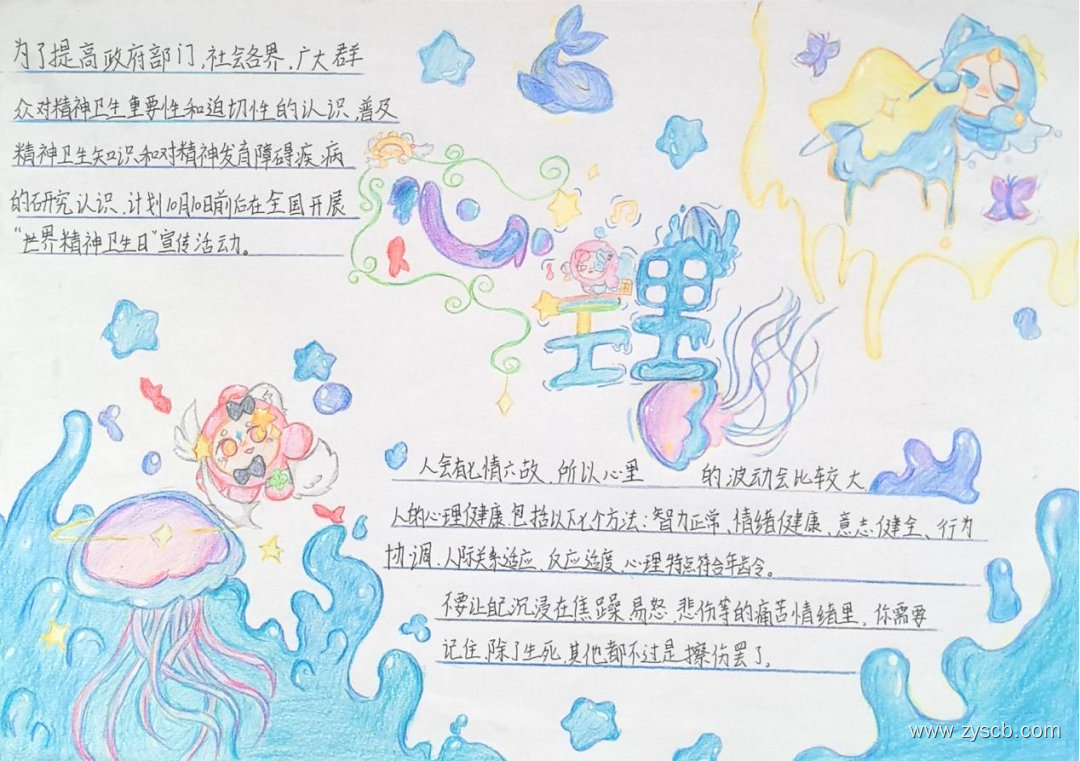 为了提高政府部门，社会各界，广大群
众对精神卫生重要性和迫切性的认识，普及
精神卫生知识和对精神发育障碍疾病
的研究认识，计划10月10日前后在全国开展
“世界精神卫生日”宣传活动。
心理
人会有七情六故，所以心里 的波动会比较大
人的心理健康包括以下七个方法：智力正常、情绪健康、意志健全、行为
协调、人际关系适应、反应适度、心理特点符合年龄令。
不要让自己沉浸在焦躁、易怒、悲伤等的痛苦情绪里，你需要
记住，除了生死，其他都不过是擦伤罢了。
www.zyscb.com